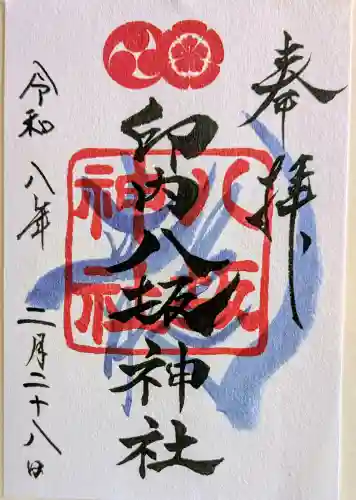 奉拝
印内八坂神社
八坂
神社
令和八年二月二十八日